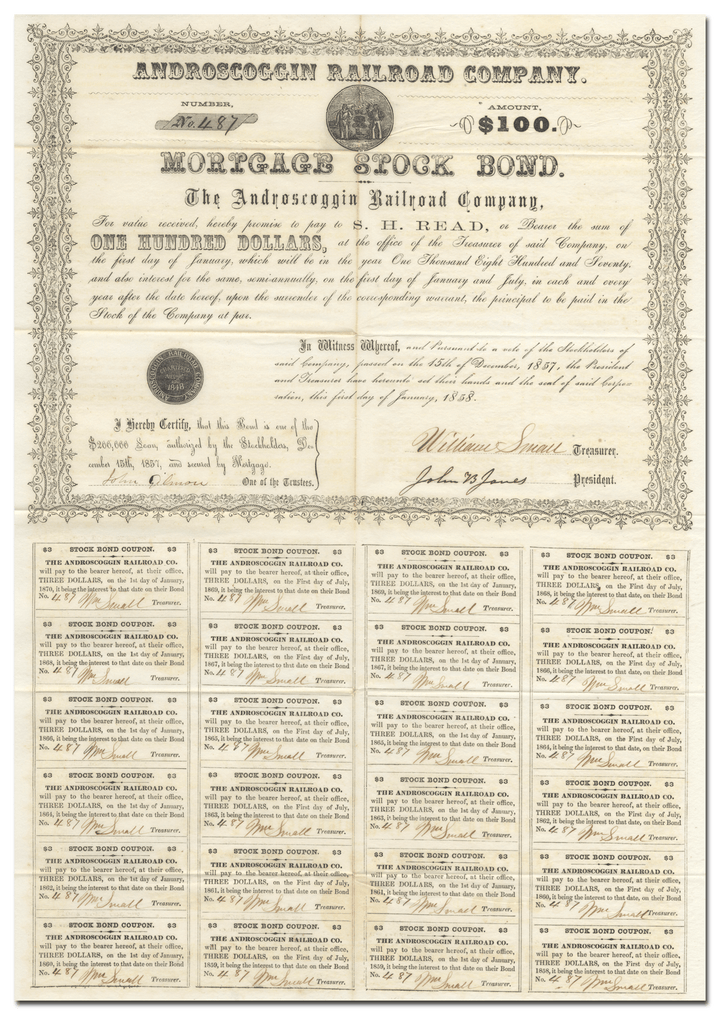 ANDROSCOGGIN RAILROAD COMPANY.
NUMBER,
No. 487
AMOUNT,
$100.
MORTGAGE STOCK BOND.
The Androscoggin Railroad Company,
For value received, hereby promise to pay to S. H. READ, or Bearer the sum of
ONE HUNDRED DOLLARS, at the office of the Treasurer of said Company, on
the first day of January, which will be in the year One Thousand Eight Hundred and Seventy.
and also interest for the same, semi-annually, on the first day of January and July, in each and every
year after the date hereof, upon the surrender of the corresponding warrant, the principal to be paid in the
Stock of the Company at par.
In Witness Whereof, and Pursuant to a vote of the Stockholders of
said Company, passed on the 15th of December, 1857, the President
and Treasurer have hereunto set their hands and the seal of said Corpo-
ration, this first day of January, 1858.
ANDROSCOGGIN RAILROAD COMPANY
1848
I Hereby Certify, that this Bond is one of the
$200,000 Loan, authorized by the Stockholders, De-
cember 15th, 1857, and secured by Mortgage.
John Gilmon One of the Trustees.
William Small Treasurer.
John B Jones President.
$3 STOCK BOND COUPON. $3
THE ANDROSCOGGIN RAILROAD CO.
will pay to the bearer hereof, at their office,
THREE DOLLARS, on the 1st day of January,
1870, it being the interest to that date on their Bond
No. 487 Wm Small Treasurer.
$3 STOCK BOND COUPON. $3
THE ANDROSCOGGIN RAILROAD CO.
will pay to the bearer hereof, at their office,
THREE DOLLARS, on the First day of July,
1869, it being the interest to that date on their Bond
No. 487 Wm Small Treasurer.
$3 STOCK BOND COUPON. $3
THE ANDROSCOGGIN RAILROAD CO.
will pay to the bearer hereof, at their office,
THREE DOLLARS, on the 1st day of January,
1869, it being the interest to that date on their Bond
No. 487 Wm Small Treasurer.
$3 STOCK BOND COUPON. $3
THE ANDROSCOGGIN RAILROAD CO.
will pay to the bearer hereof, at their office,
THREE DOLLARS, on the First day of July,
1868, it being the interest to that date, on their Bond
No. 487 Wm Small Treasurer.
$3 STOCK BOND COUPON. $3
THE ANDROSCOGGIN RAILROAD CO.
will pay to the bearer hereof, at their office,
THREE DOLLARS, on the 1st day of January,
1868, it being the interest to that date on their Bond
No. 487 Wm Small Treasurer.
$3 STOCK BOND COUPON. $3
THE ANDROSCOGGIN RAILROAD CO.
will pay to the bearer hereof, at their office,
THREE DOLLARS, on the First day of July,
1867, it being the interest to that date on their Bond
No. 487 Wm Small Treasurer.
$3 STOCK BOND COUPON. $3
THE ANDROSCOGGIN RAILROAD CO.
will pay to the bearer hereof, at their office,
THREE DOLLARS, on the 1st day of January,
1867, it being the interest to that date on their Bond
No. 487 Wm Small Treasurer.
$3 STOCK BOND COUPON. $3
THE ANDROSCOGGIN RAILROAD CO.
will pay to the bearer hereof, at their office,
THREE DOLLARS, on the First day of July,
1866, it being the interest to that date, on their Bond
No. 487 Wm Small Treasurer.
$3 STOCK BOND COUPON. $3
THE ANDROSCOGGIN RAILROAD CO.
will pay to the bearer hereof, at their office,
THREE DOLLARS, on the 1st day of January,
1866, it being the interest to that date on their Bond
No. 487 Wm Small Treasurer.
$3 STOCK BOND COUPON. $3
THE ANDROSCOGGIN RAILROAD CO.
will pay to the bearer hereof, at their office,
THREE DOLLARS, on the First day of July,
1865, it being the interest to that date on their Bond
No. 487 Wm Small Treasurer.
$3 STOCK BOND COUPON. $3
THE ANDROSCOGGIN RAILROAD CO.
will pay to the bearer hereof, at their office,
THREE DOLLARS, on the 1st day of January,
1865, it being the interest to that date on their Bond
No. 487 Wm Small Treasurer.
$3 STOCK BOND COUPON. $3
THE ANDROSCOGGIN RAILROAD CO.
will pay to the bearer hereof, at their office,
THREE DOLLARS, on the First day of July,
1864, it being the interest to that date, on their Bond
No. 487 Wm Small Treasurer.
$3 STOCK BOND COUPON. $3
THE ANDROSCOGGIN RAILROAD CO.
will pay to the bearer hereof, at their office,
THREE DOLLARS, on the 1st day of January,
1864, it being the interest to that date on their Bond
No. 487 Wm Small Treasurer.
$3 STOCK BOND COUPON. $3
THE ANDROSCOGGIN RAILROAD CO.
will pay to the bearer hereof, at their office,
THREE DOLLARS, on the First day of July,
1863, it being the interest to that date on their Bond
No. 487 Wm Small Treasurer.
$3 STOCK BOND COUPON. $3
THE ANDROSCOGGIN RAILROAD CO.
will pay to the bearer hereof, at their office,
THREE DOLLARS, on the 1st day of January,
1863, it being the interest to that date on their Bond
No. 487 Wm Small Treasurer.
$3 STOCK BOND COUPON. $3
THE ANDROSCOGGIN RAILROAD CO.
will pay to the bearer hereof, at their office,
THREE DOLLARS, on the First day of July,
1862, it being the interest to that date, on their Bond
No. 487 Wm Small Treasurer.
$3 STOCK BOND COUPON. $3
THE ANDROSCOGGIN RAILROAD CO.
will pay to the bearer hereof, at their office,
THREE DOLLARS, on the 1st day of January,
1862, it being the interest to that date on their Bond
No. 487 Wm Small Treasurer.
$3 STOCK BOND COUPON. $3
THE ANDROSCOGGIN RAILROAD CO.
will pay to the bearer hereof, at their office,
THREE DOLLARS, on the First day of July,
1861, it being the interest to that date on their Bond
No. 487 Wm Small Treasurer.
$3 STOCK BOND COUPON. $3
THE ANDROSCOGGIN RAILROAD CO.
will pay to the bearer hereof, at their office,
THREE DOLLARS, on the 1st day of January,
1861, it being the interest to that date on their Bond
No. 487 Wm Small Treasurer.
$3 STOCK BOND COUPON. $3
THE ANDROSCOGGIN RAILROAD CO.
will pay to the bearer hereof, at their office,
THREE DOLLARS, on the First day of July,
1860, it being the interest to that date, on their Bond
No. 487 Wm Small Treasurer.
$3 STOCK BOND COUPON. $3
THE ANDROSCOGGIN RAILROAD CO.
will pay to the bearer hereof, at their office,
THREE DOLLARS, on the 1st day of January,
1860, it being the interest to that date on their Bond
No. 487 Wm Small Treasurer.
$3 STOCK BOND COUPON. $3
THE ANDROSCOGGIN RAILROAD CO.
will pay to the bearer hereof, at their office,
THREE DOLLARS, on the First day of July,
1859, it being the interest to that date on their Bond
No. 487 Wm Small Treasurer.
$3 STOCK BOND COUPON. $3
THE ANDROSCOGGIN RAILROAD CO.
will pay to the bearer hereof, at their office,
THREE DOLLARS, on the 1st day of January,
1859, it being the interest to that date on their Bond
No. 487 Wm Small Treasurer.
$3 STOCK BOND COUPON. $3
THE ANDROSCOGGIN RAILROAD CO.
will pay to the bearer hereof, at their office,
THREE DOLLARS, on the First day of July,
1858, it being the interest to that date, on their Bond
No. 487 Wm Small Treasurer.